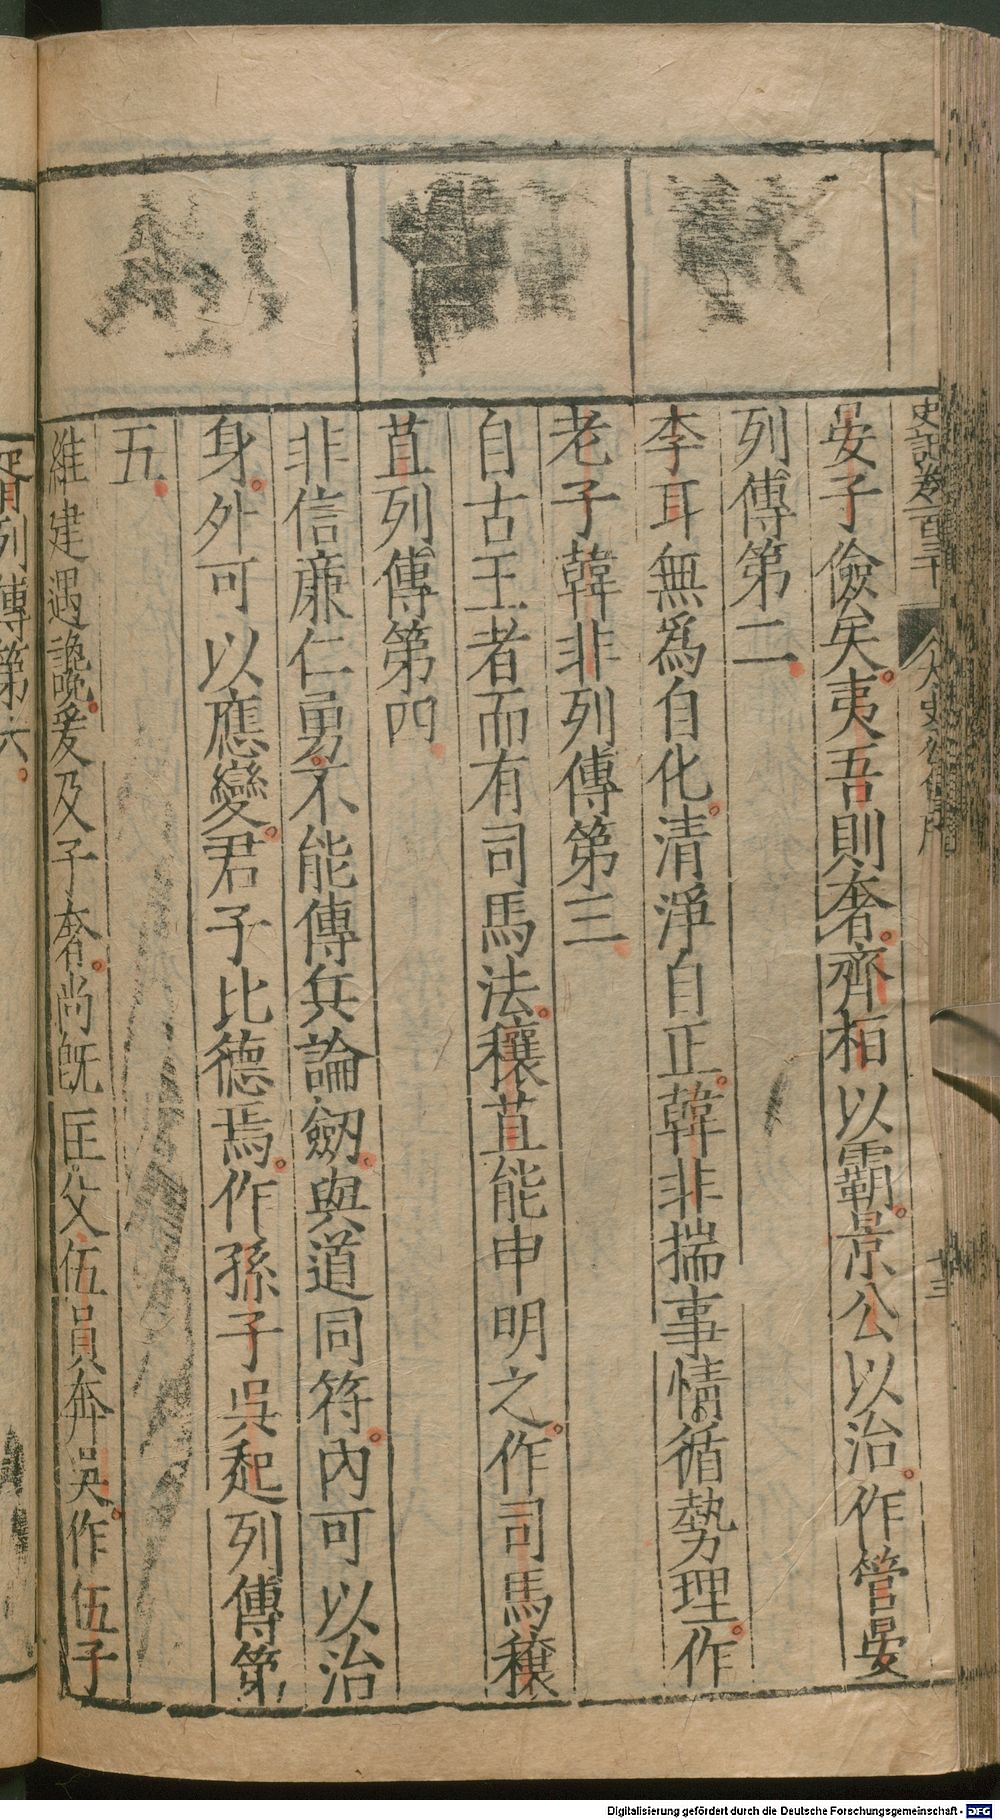 史記卷一百三十 太史公自序 十三
晏子儉矣夷吾則奢齊桓以霸景公以治作管晏
列傳第二
李耳無爲自化清淨自正韓非揣事情循勢理作
老子韓非列傳第三
自古王者而有司馬法穰苴能申明之作司馬穰
苴列傳第四
非信廉仁勇不能傳兵論劒與道同符內可以治
身外可以應變君子比德焉作孫子吳起列傳第
五
維建遇讒爰及子奢尚旣匡父伍員奔吳作伍子
胥列傳第六
Digitalisierung gefördert durch die Deutsche Forschungsgemeinschaft - DFG